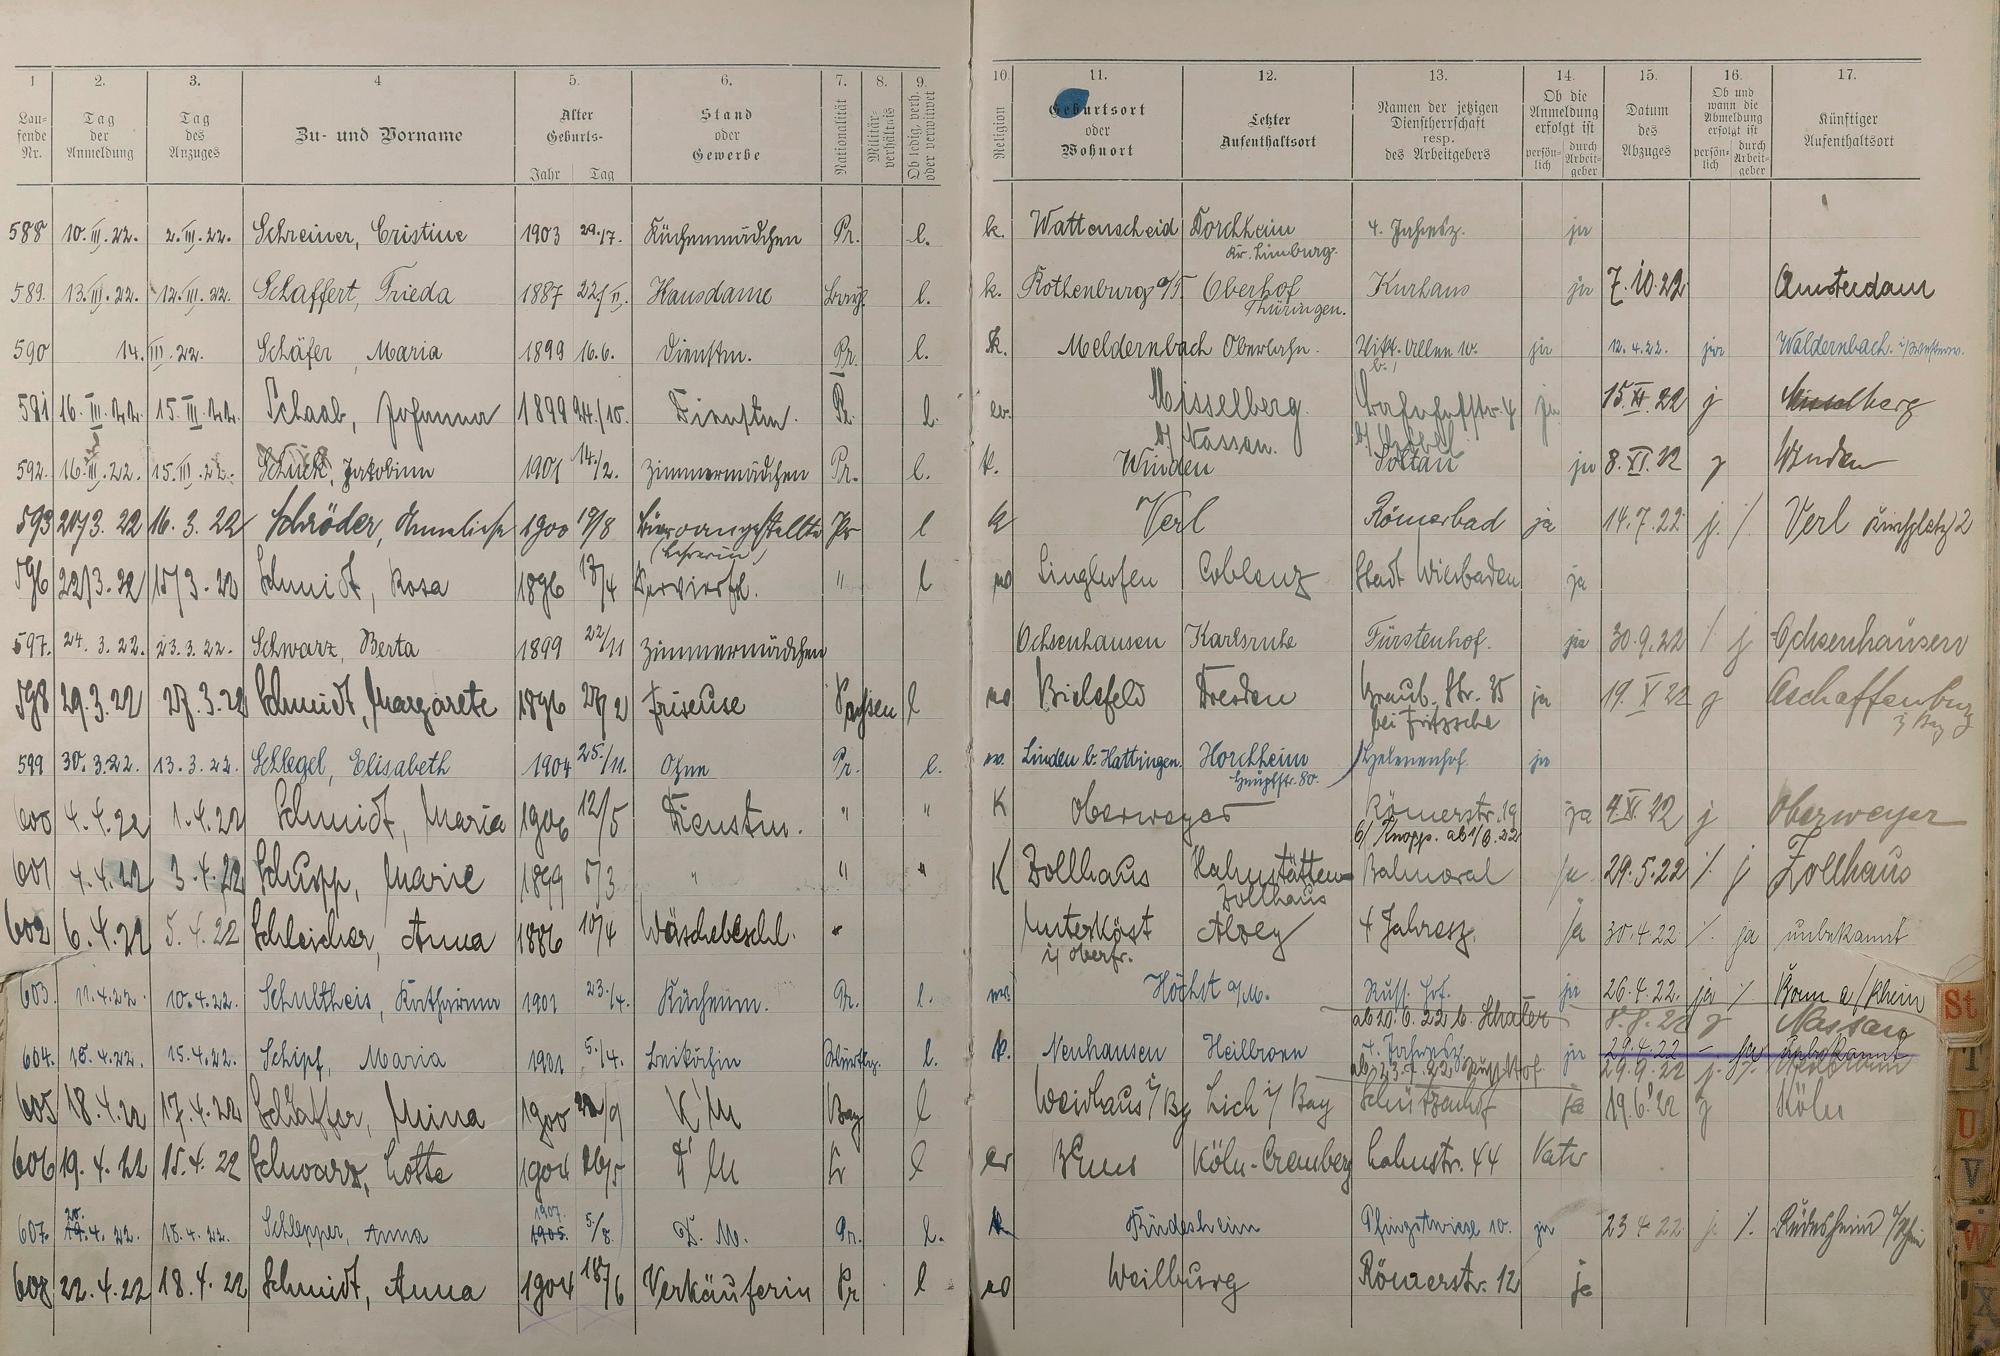 1 2. 3. 4 5. 6. 7. 8. 9. 10. 11. 12. 13. 14. 15. 16. 17.
Laufende Nr. Tag der Anmeldung Tag des Anzuges Zu- und Vorname Alter Geburts- Jahr Tag Stand oder Gewerbe Nationalität Militärverhältnis Ob ledig, verh. oder verwitwet Religion Geburtsort oder Wohnort Letzter Aufenthaltsort Namen der jetzigen Dienstherrschaft resp. des Arbeitgebers Ob die Anmeldung erfolgt ist persönlich durch Arbeitgeber Datum des Abzuges Ob und wann die Abmeldung erfolgt ist persönlich durch Arbeitgeber Künftiger Aufenthaltsort
588 10. III. 22. 2. III. 22. Schreiner, Cristine 1903 29./7. Küchenmädchen Pr. l. k. Wattenscheid 4. Jahresz. ja
Kr. Limburg.
589. 13. III. 22. 12. III. 22. Schaffert, Frieda 1887 Hausdame l. k. Rothenburg o/T. Oberhof Kurhaus ja 7.10.22 Amsterdam
Thüringen.
590 14. III. 22. Schäfer, Maria 1899 16.6. Dienstm. Pr. l. k. Meldernbach Oberlahn. ja 12.4.22. ja Waldernbach. i/Westerw.
591 16. III. 22. 15. III. 22. Schaab, Johanna 1899 24./10. Dienstm. Pr. l. ev. Misselberg. Bahnhofstr. 4 ja 15. XI. 22 j
b/ Nassau.
592. 16. III. 22. 15. III. 22. Schuck, Jakobina 1901 14./2. Zimmermädchen Pr. l. k. Winden Soltau ja 8. XI. 22 j Winden
593 20/3. 22 16. 3. 22 Schröder, Anneliese 1900 19/8 Büroangestellte Pr l k Verl Römerbad ja 14.7.22 j. /. Verl Kirchplatz 2
(Lehrerin)
596 22/3. 22 15/3. 22 Schmidt, Rosa 1896 13/4 Servierfrl. " l Singhofen Coblenz Stadt Wiesbaden ja
597. 24. 3. 22. 23. 3. 22. Schwarz, Berta 1899 22/11 Zimmermädchen Ochsenhausen Karlsruhe Fürstenhof. ja 30.9.22 / j Ochsenhausen
598 29.3.22 27.3.22 Schmidt, Margarete 1896 28/2 Friseuse Sachsen l Bielefeld Dresden Graub. Str. 35 ja 19. X 22 j Aschaffenburg
bei Fritzsche
599 30.3.22. 13.3.22. Schlegel, Elisabeth 1904 25./11. Ohne Pr. l. ev. Linden b. Hattingen. Horchheim Helenenhof. ja
Hauptstr. 80.
600 4.4.22 1.4.22 Schmidt, Maria 1906 12/5 Dienstm. " " K Oberweyer Römerstr. 19 ja 4. XI. 22 j Oberweyer
b/ Knopp. ab 1/6.22
601 4.4.22 3.4.22 Schupp, Marie 1899 5/3 " " " K Zollhaus Hahnstätten Balmoral ja 29.5.22 /. j Zollhaus
Zollhaus
602 6.4.22 5.4.22 Schleicher, Anna 1886 10/4 Wäschebeschl. " Alzey 4 Jahresz. ja 30.4.22 /. ja unbekannt
i/ Oberfr.
603. 11.4.22. 10.4.22. Schultheis, Katharina 1901 23./4. Pr. l. ev. Höchst a/M. Russ. Hof. ja 26.4.22. ja /. Bonn a/Rhein
ab 20.6.22 b. Schäfer 8.8.22 j Nassau
604. 18.4.22. 15.4.22. Schipf, Maria 1901 5./4. Beiköchin l. k. Neuhausen Heilbronn 4. Jahresz. ja 29.4.22 – ja unbekannt
29.9.22
605 18.4.22 17.4.22 Schäffer, Mina 1900 /9 K M Bay l i/Bay Lich i/ Bay Schützenhof ja 19.6.22 j Köln
606 19.4.22 15.4.22 Schwarz, Lotte 1904 26/5 D M Pr l ev B Ems Köln- Lahnstr. 44 Vater
607. 20. 19.4.22. 18.4.22. Schlepper, Anna 1907. 1905. 5./8. D. M. Pr. l. k Rüdesheim Pfingstwiese 10. ja 23 4 22 j. /. Rüdesheim
608 22.4.22 18.4.22 Schmidt, Anna 1904 18/6 Verkäuferin Pr l Weilburg Römerstr. 12 ja
St
T
U
V
W
X